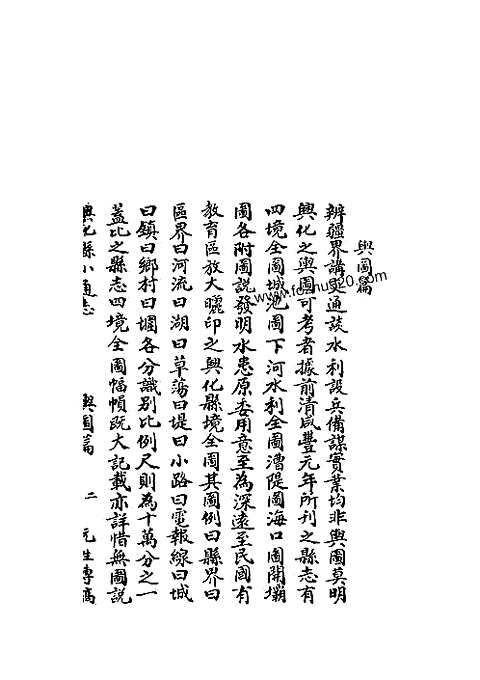 輿圖篇
辨疆界講交通談水利設兵備謀實業均非輿圖莫明
興化之輿圖可考者據前清咸豐元年所刊之縣志有
四境全圖城池圖下河水利全圖漕隄圖海口圖開壩
圖各附圖說發明水患原委用意至為深遠至民國有
教育區放大曬印之興化縣境全圖其圖例曰縣界曰
區界曰河流曰湖曰草蕩曰堤曰小路曰電報線曰城
曰鎮曰鄉村曰堰各分識別比例尺則為十萬分之一
蓋比之縣志四境全圖幅幀既大記載亦詳惜無圖說
興化縣小通志 輿圖篇 二 元生專稿